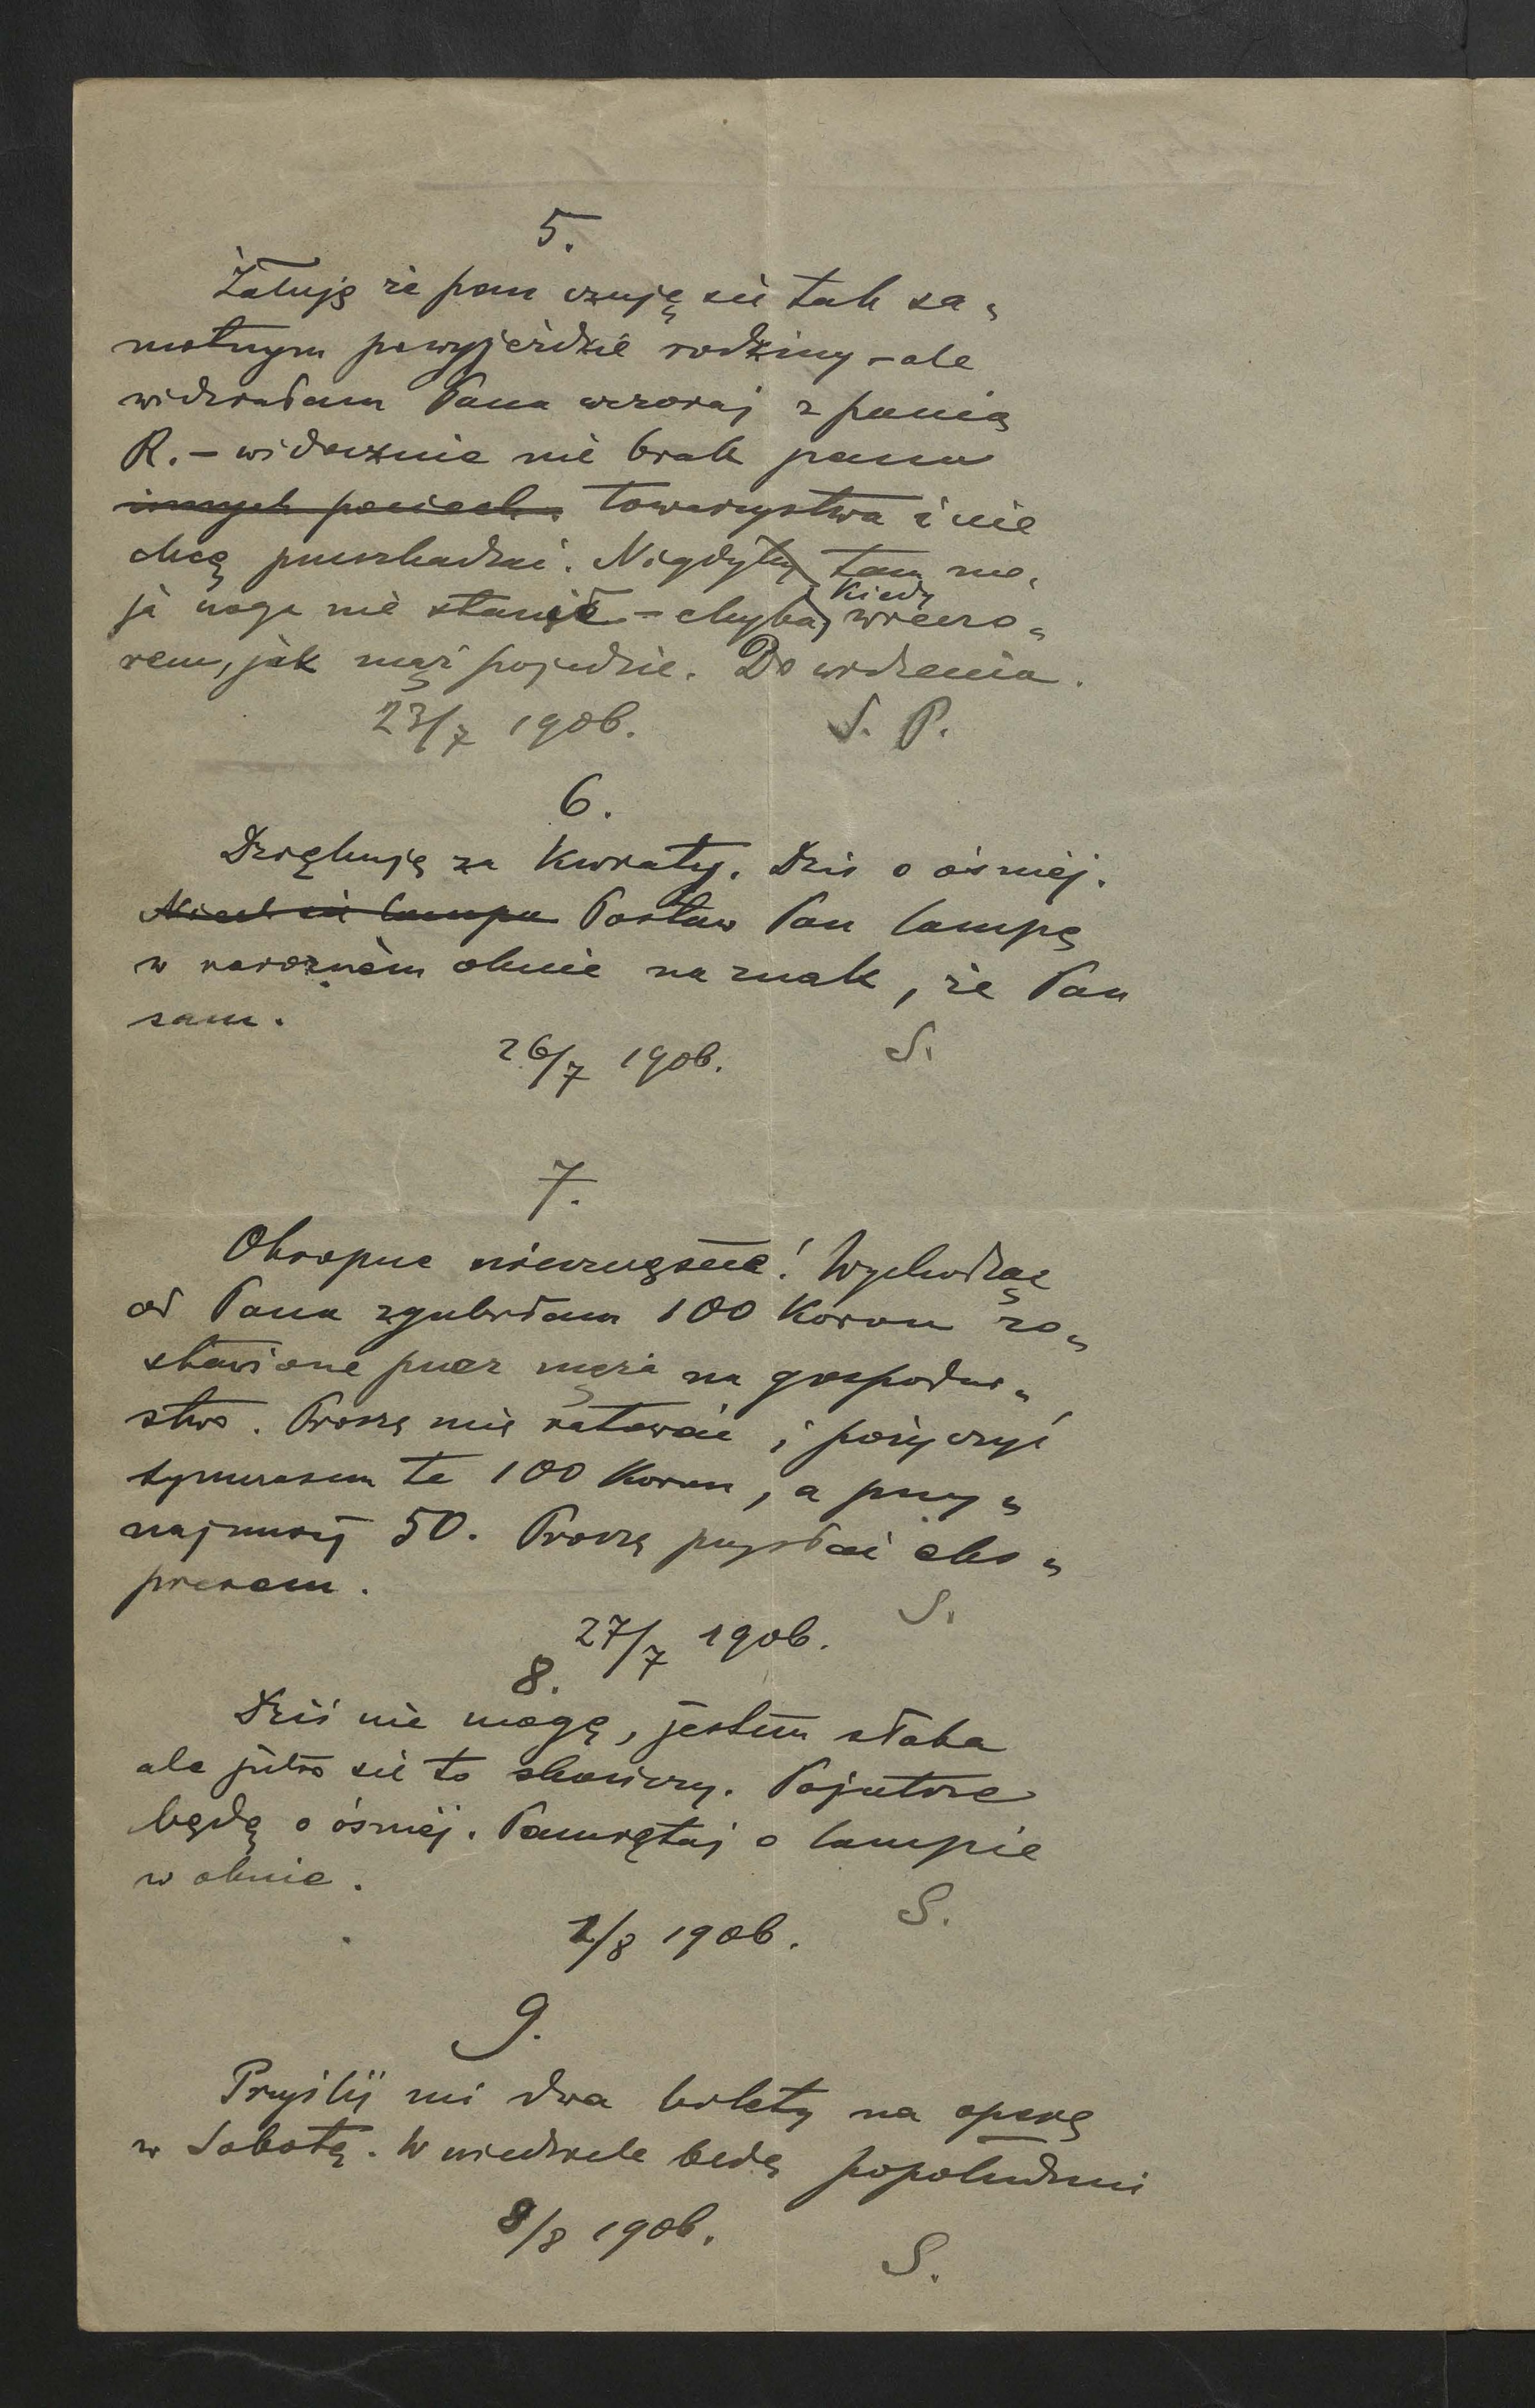 5.
Żałuję że pan czuję się tak sa„
motnym po wyjeździe rodziny – ale
widziałam Pana wczoraj z panią
R. – widocznie nie brak panu
innych pociech. towarzystwa i nie
chcę przeszkadzać. Nigdyby tam mo„
ja noga nie stanęła – chyba, kiedy wieczo„
rem, jak mąż pojedzie. Do widzenia.
23/7 1906. S. P.
6.
Dziękuję za kwiaty. Dziś o ósmej.
Niech się lampa Postaw Pan lampę
w narożnem oknie na znak, że Pan
sam.
26/7 1906. S.
7.
Okropne nieszczęście! Wychodząc
od Pana zgubiłam 100 Koron zo„
stawione przez męża na gospodar„
stwo. Proszę mię ratować i pożyczyć
tymczasem te 100 Koron, a przy„
najmniej 50. Proszę przysłać eks„
presem.
S.
27/7 1906.
8.
Dziś nie mogę, jestem słaba
ale jutro się to skończy. Pojutrze
będę o ósmej. Pamiętaj o lampie
w oknie.
S.
1/8 1906.
9.
Przyślij mi dwa bilety na operę
w Sobotę. W niedziele będę popołudniu
8/8 1906.
S.